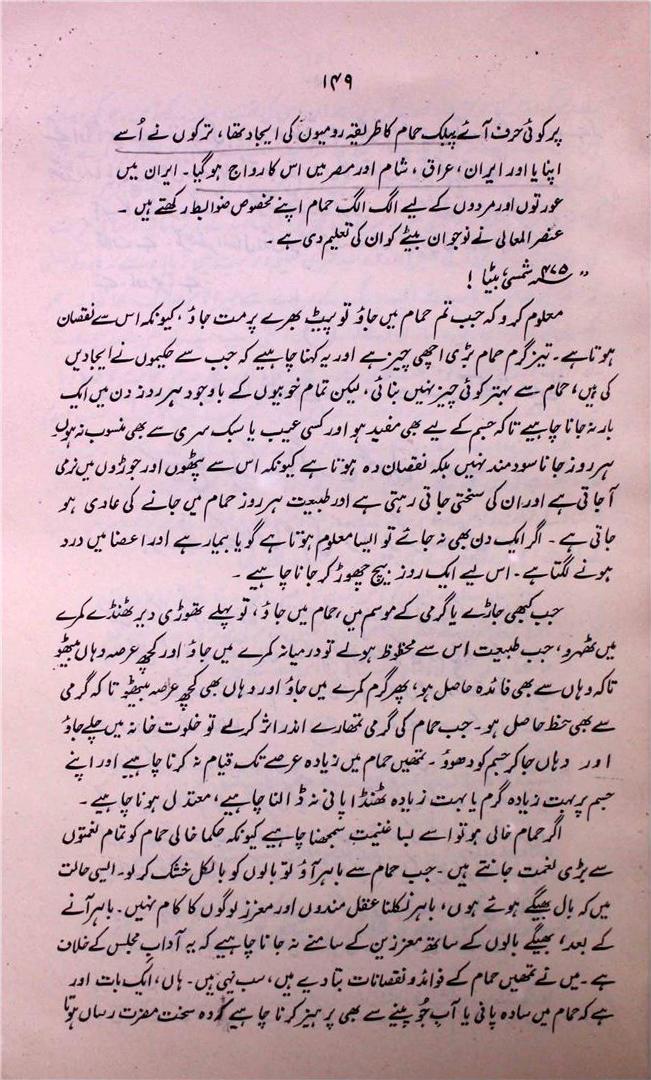 ۱۴۹
پر کوئی حرف آئے پبلک حمام کا طریقہ رومیوں کی ایجاد تھا، ترکوں نے اُسے
اپنایا اور ایران، عراق، شام اور مصر میں اس کا رواج ہو گیا۔ ایران میں
عورتوں اور مردوں کے لیے الگ الگ حمام اپنے مخصوص ضوابط رکھتے ہیں۔
عنصر المعالی نے نوجوان بیٹے کو ان کی تعلیم دی ہے۔
"۴۷۵ شمسی، بیٹا!
معلوم کرو کہ جب تم حمام میں جاؤ تو پیٹ بھرے پر مت جاؤ، کیونکہ اس سے نقصان
ہوتا ہے۔ تیز گرم حمام بڑی اچھی چیز ہے اور یہ کہنا چاہیے کہ جب سے حکیموں نے ایجادیں
کی ہیں، حمام سے بہتر کوئی چیز نہیں بنائی، لیکن تمام خوبیوں کے باوجود ہر روز دن میں ایک
بار نہ جانا چاہیے تاکہ جسم کے لیے بھی مفید ہو اور کسی عیب یا سبک سری سے بھی منسوب نہ ہوں۔
ہر روز جانا سودمند نہیں بلکہ نقصان دہ ہوتا ہے کیونکہ اس سے پٹھوں اور جوڑوں میں نرمی
آ جاتی ہے اور ان کی سختی جاتی رہتی ہے اور طبیعت ہر روز حمام میں جانے کی عادی ہو
جاتی ہے۔ اگر ایک دن بھی نہ جائے تو ایسا معلوم ہوتا ہے گویا بیمار ہے اور اعضا میں درد
ہونے لگتا ہے۔ اس لیے ایک روز بیچ چھوڑ کر جانا چاہیے۔
جب کبھی جاڑے یا گرمی کے موسم میں، حمام میں جاؤ، تو پہلے تھوڑی دیر ٹھنڈے کمرے
میں ٹھہرو، جب طبیعت اس سے محظوظ ہولے تو درمیانہ کمرے میں جاؤ اور کچھ عرصہ وہاں بیٹھو
تاکہ وہاں سے بھی فائدہ حاصل ہو، پھر گرم کمرے میں جاؤ اور وہاں بھی کچھ عرصہ بیٹھو تاکہ گرمی
سے بھی حظ حاصل ہو۔ جب حمام کی گرمی تمھارے اندر اثر کرلے تو خلوت خانہ میں چلے جاؤ
اور وہاں جا کر جسم کو دھوؤ۔ تمھیں حمام میں زیادہ عرصے تک قیام نہ کرنا چاہیے اور اپنے
جسم پر بہت زیادہ گرم یا بہت زیادہ ٹھنڈا پانی نہ ڈالنا چاہیے، معتدل ہونا چاہیے۔
اگر حمام خالی ہو تو اسے بسا غنیمت سمجھنا چاہیے کیونکہ حکما خالی حمام کو تمام نعمتوں
سے بڑی نعمت جانتے ہیں۔ جب حمام سے باہر آؤ تو بالوں کو بالکل خشک کر لو۔ ایسی حالت
میں کہ بال بھیگے ہوئے ہوں، باہر نکلنا عقل مندوں اور معزز لوگوں کا کام نہیں۔ باہر آنے
کے بعد، بھیگے بالوں کے ساتھ معززین کے سامنے نہ جانا چاہیے کہ یہ آدابِ مجلس کے خلاف
ہے۔ میں نے تمھیں حمام کے فوائد و نقصانات بتا دیے ہیں، سب یہی ہیں۔ ہاں، ایک بات اور
ہے کہ حمام میں سادہ پانی یا آبِ جُو پینے سے بھی پرہیز کرنا چاہیے کہ وہ سخت مضرت رساں ہوتا